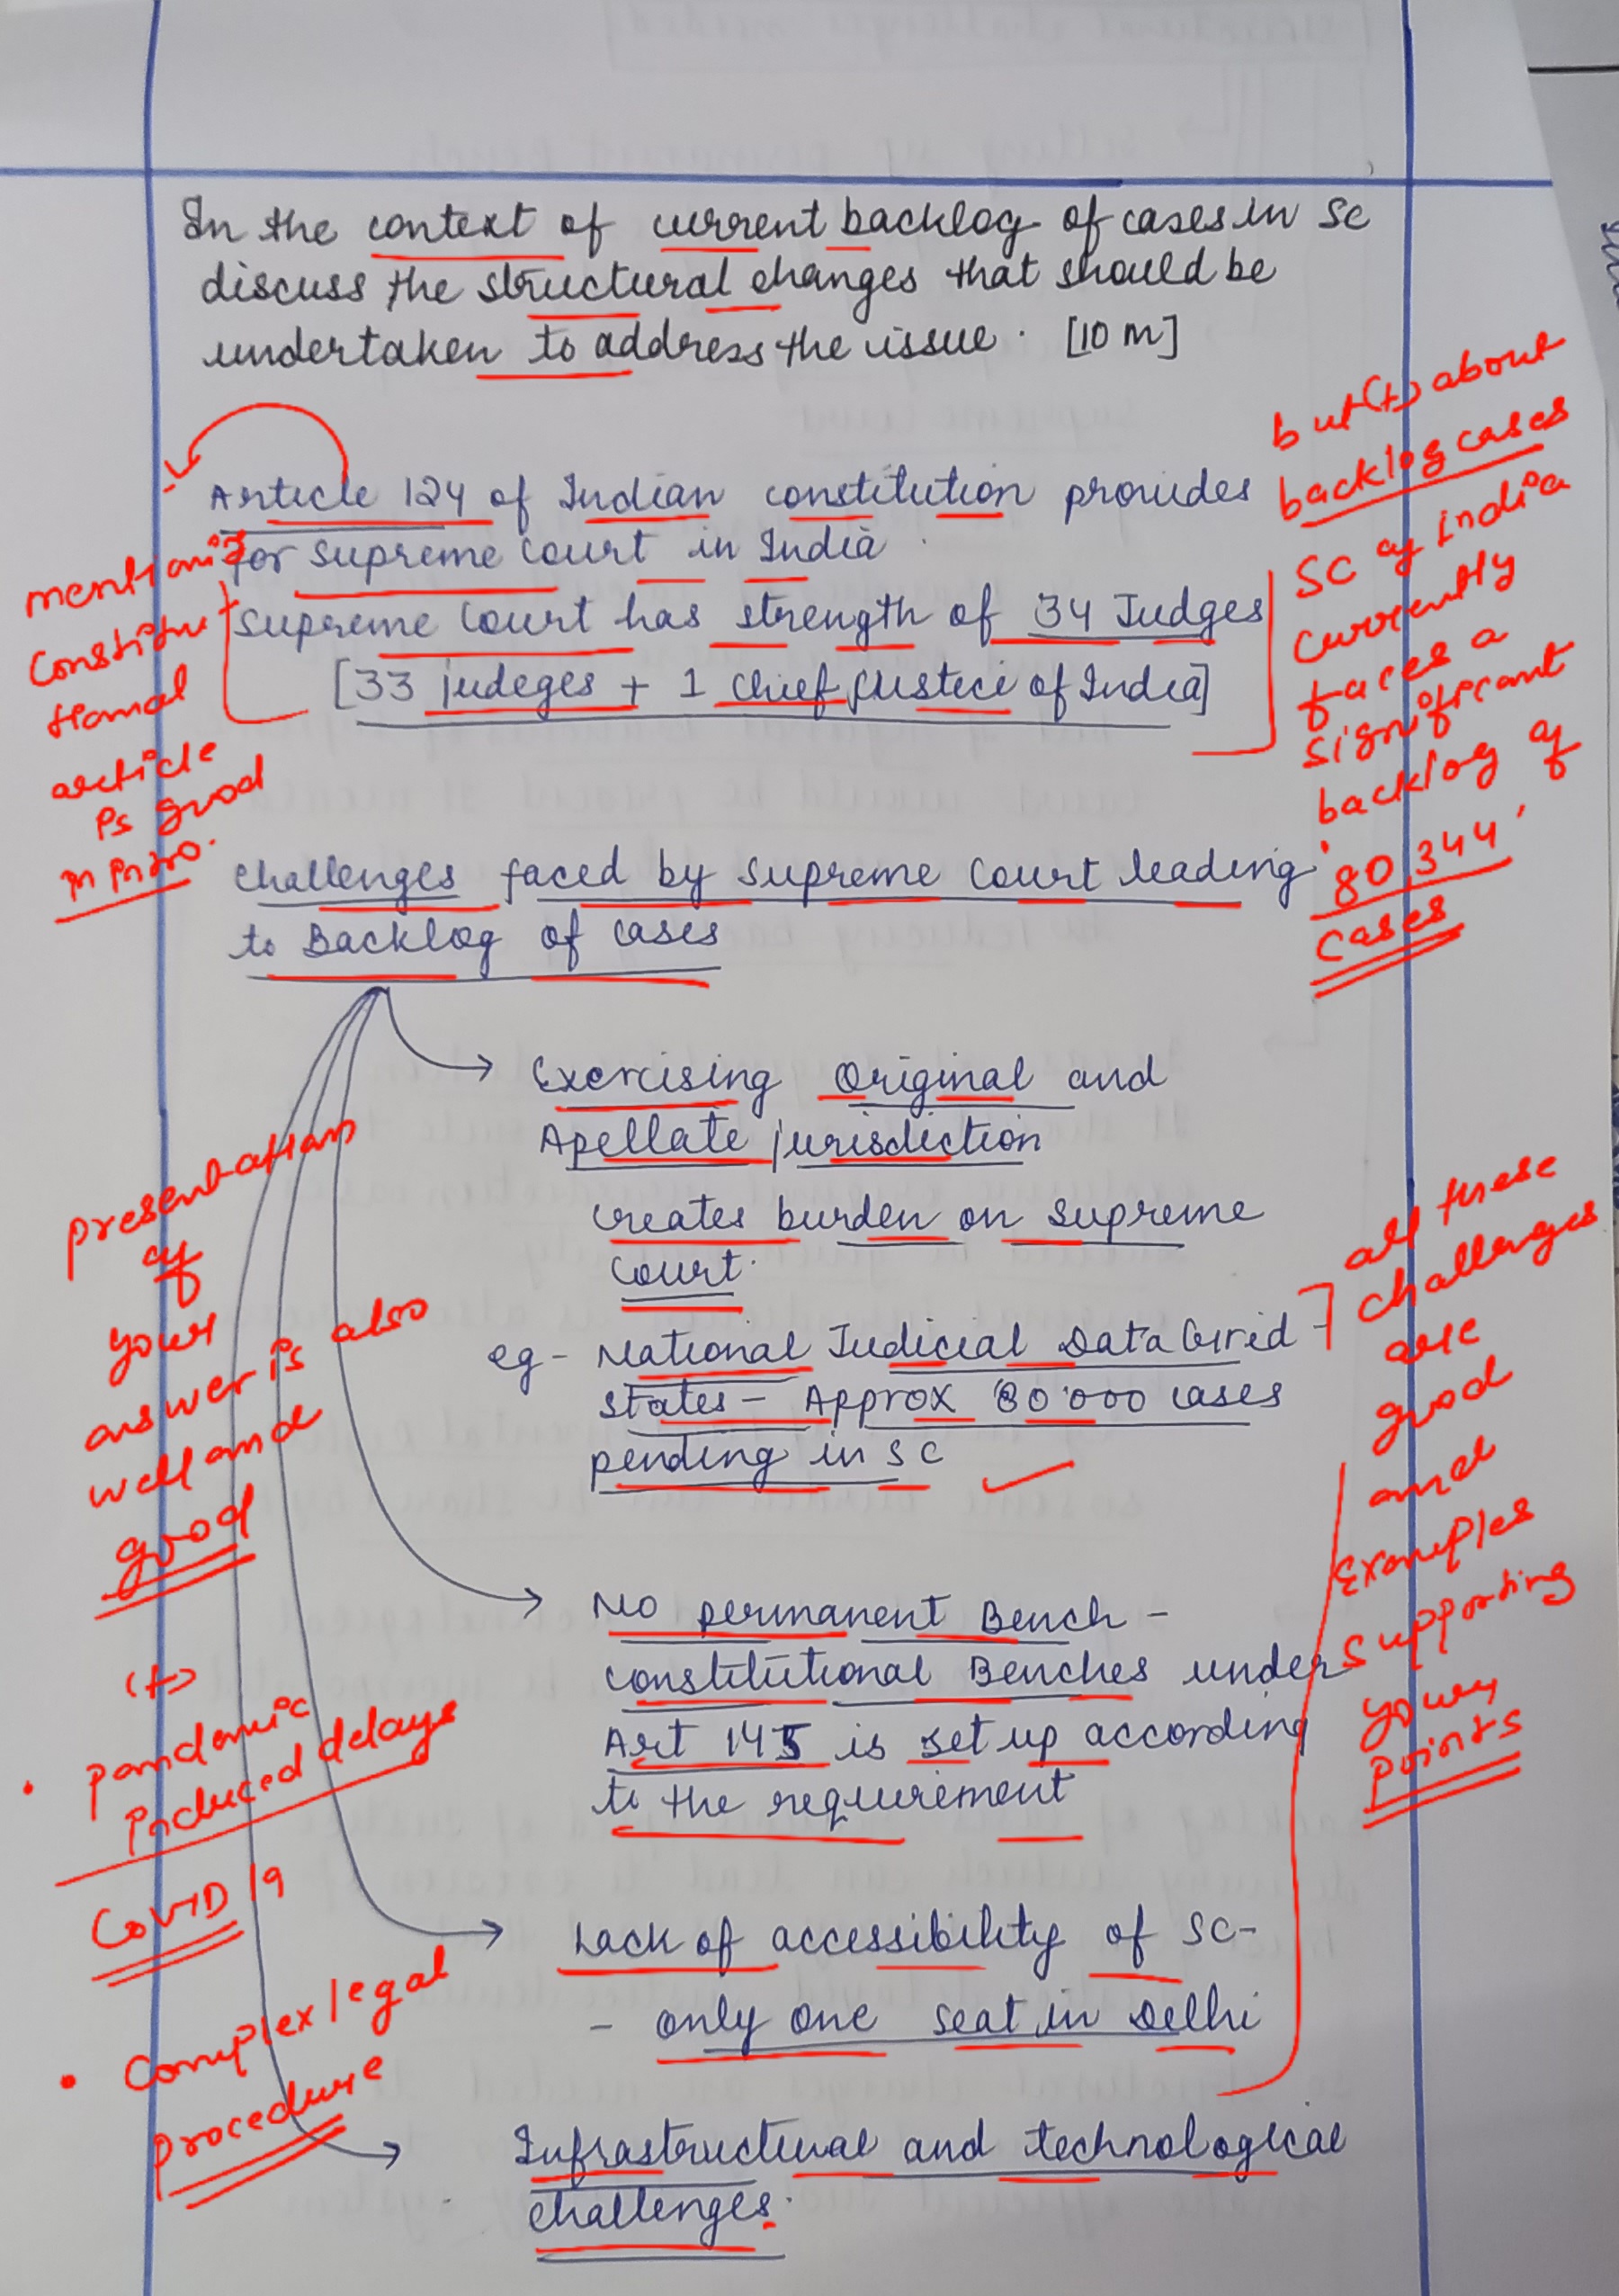 In the context of current backlog of cases in SC
discuss the structural changes that should be
undertaken to address the issue. [10 m]
Article 124 of Indian constitution provides
for supreme court in India.
Supreme Court has strength of 34 Judges
[33 judeges + 1 chief justice of India]
mentioning
Constitu-
tional
article
is good
in intro.
but (+) about
backlog cases
SC of india
currently
faces a
significant
backlog of
'80,344'
cases
Challenges faced by Supreme Court leading
to Backlog of cases
Exercising Original and
Apellate jurisdiction
creates burden on supreme
court.
eg - National Judicial Data Grid -
states - Approx 80'000 cases
pending in SC
No permanent Bench -
constitutional Benches under
Art 145 is set up according
to the requirement
Lack of accessibility of SC-
- only one seat in Delhi
Infrastructural and technological
challenges.
presentation
of
your
answer is also
well and
good
(+)
• pandemic
induced delays
COVID 19
• Complex legal
procedure
all these
challenges
are
good
and
Examples
supporting
your
points